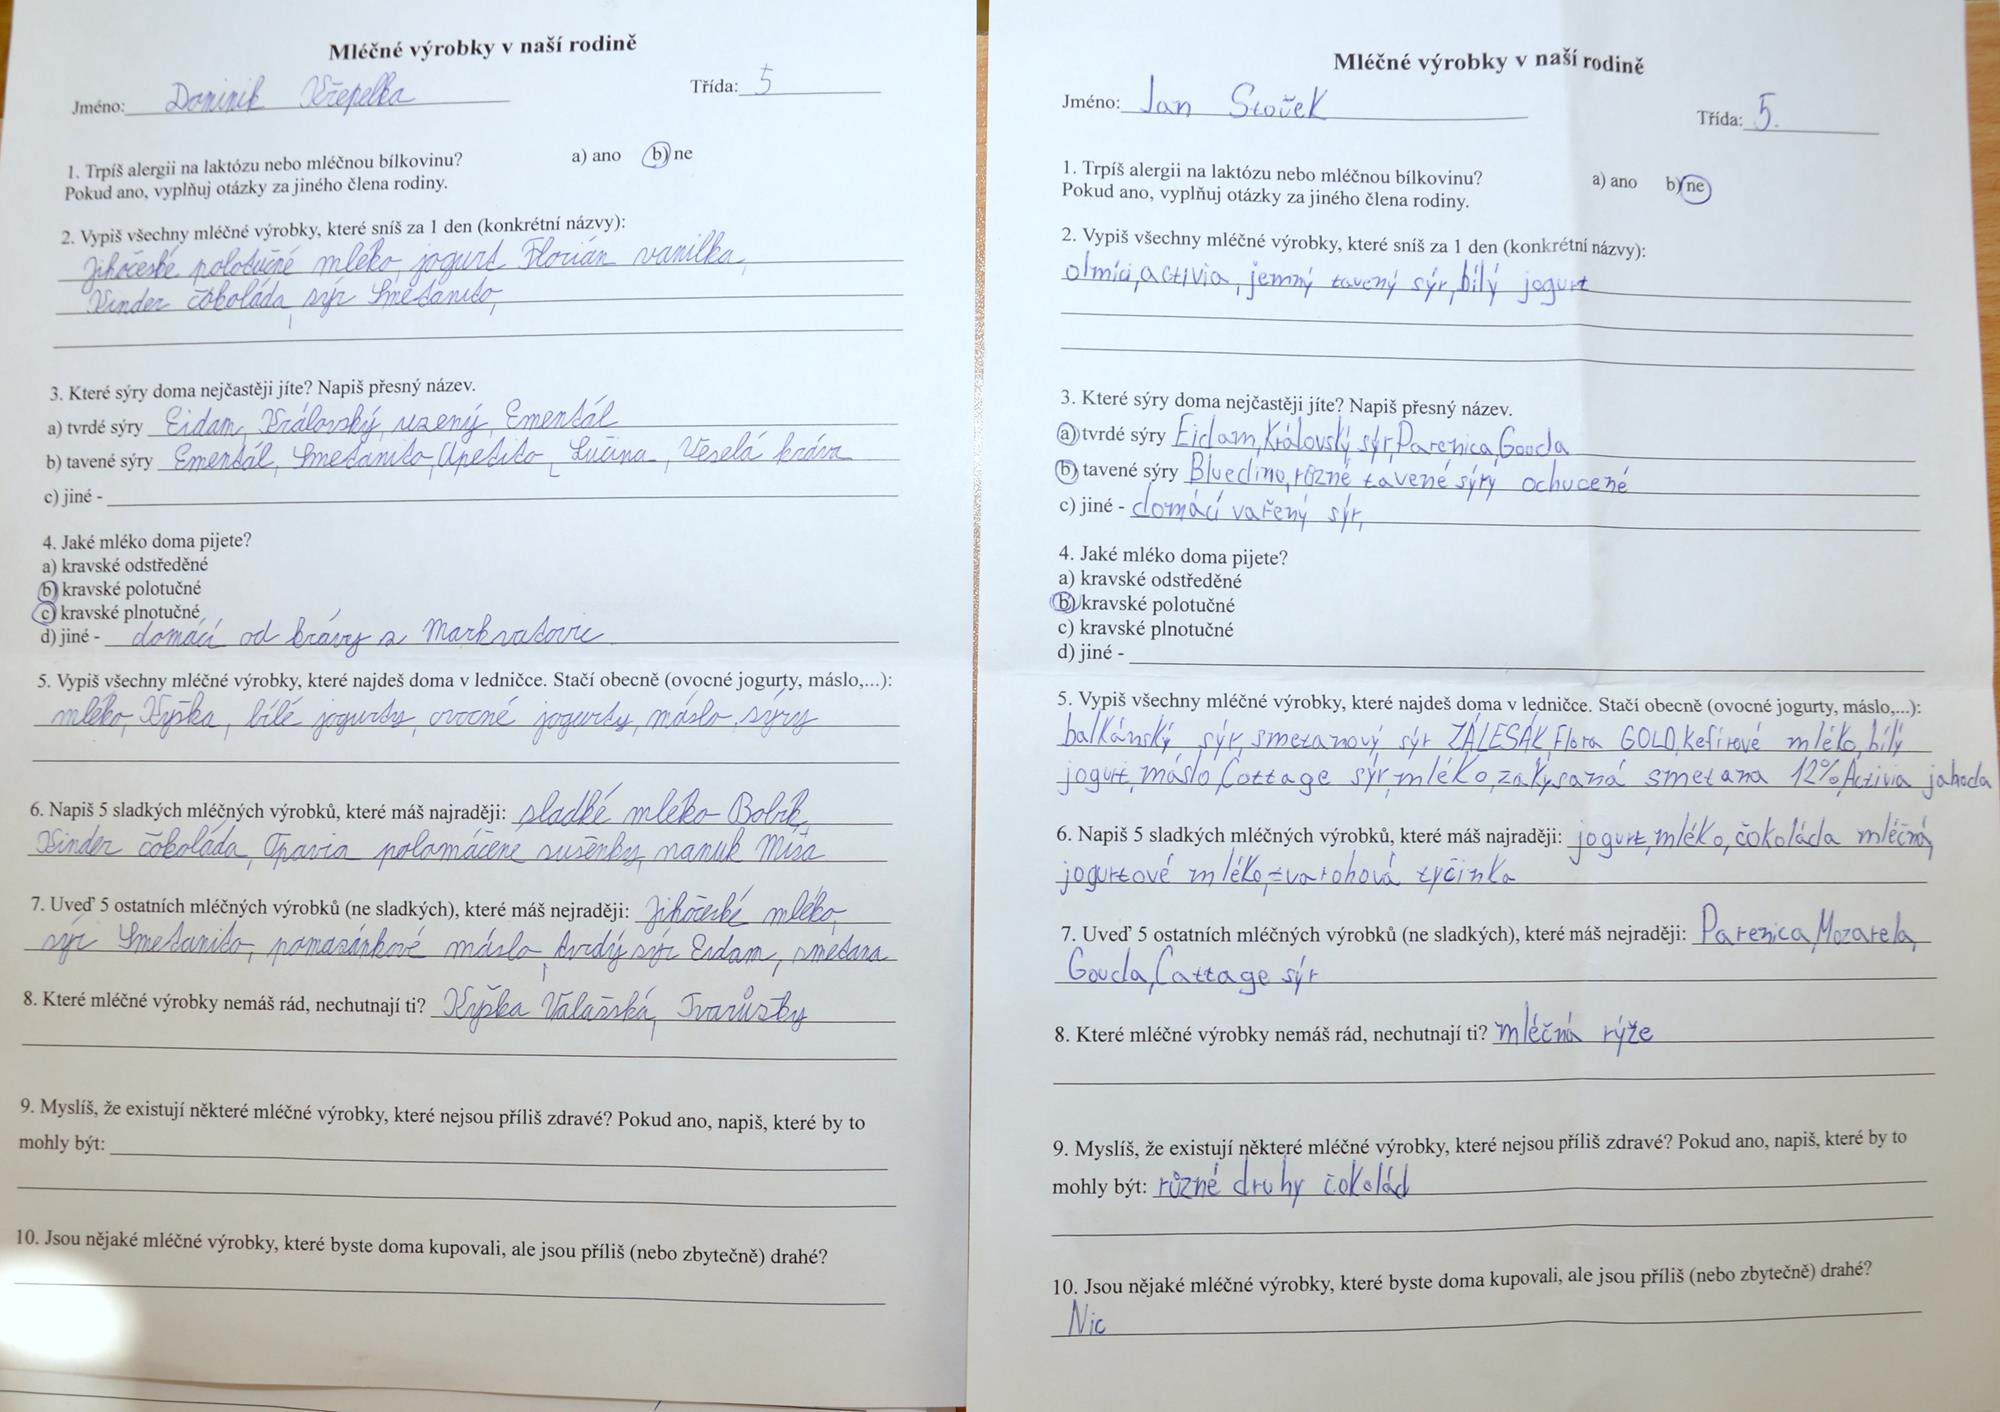 Mléčné výrobky v naší rodině
Jméno: Dominik Křepelka
Třída: 5
1. Trpíš alergii na laktózu nebo mléčnou bílkovinu? a) ano b) ne
Pokud ano, vyplňuj otázky za jiného člena rodiny.
2. Vypiš všechny mléčné výrobky, které sníš za 1 den (konkrétní názvy):
Jihočeské polotučné mléko, jogurt Florián vanilka,
Kinder čokoláda, sýr Smetanito,
3. Které sýry doma nejčastěji jíte? Napiš přesný název.
a) tvrdé sýry Eidam, Královský, uzený, Ementál
b) tavené sýry Ementál, Smetanito, Apetito, Lučina, Veselá kráva
c) jiné -
4. Jaké mléko doma pijete?
a) kravské odstředěné
b) kravské polotučné
c) kravské plnotučné
d) jiné - domácí od krávy z Markvatovic
5. Vypiš všechny mléčné výrobky, které najdeš doma v ledničce. Stačí obecně (ovocné jogurty, máslo,...):
mléko, Kyška, bílé jogurty, ovocné jogurty, máslo, sýry
6. Napiš 5 sladkých mléčných výrobků, které máš najraději: sladké mléko Bobík,
Kinder čokoláda, Opavia polomáčené sušenky, nanuk Míša
7. Uveď 5 ostatních mléčných výrobků (ne sladkých), které máš nejraději: Jihočeské mléko,
sýr Smetanito, pomazánkové máslo, tvrdý sýr Eidam, smetana
8. Které mléčné výrobky nemáš rád, nechutnají ti? Kyška Valašská, Tvarůzky
9. Myslíš, že existují některé mléčné výrobky, které nejsou příliš zdravé? Pokud ano, napiš, které by to
mohly být:
10. Jsou nějaké mléčné výrobky, které byste doma kupovali, ale jsou příliš (nebo zbytečně) drahé?
Mléčné výrobky v naší rodině
Jméno: Jan Stoček
Třída: 5.
1. Trpíš alergii na laktózu nebo mléčnou bílkovinu? a) ano b) ne
Pokud ano, vyplňuj otázky za jiného člena rodiny.
2. Vypiš všechny mléčné výrobky, které sníš za 1 den (konkrétní názvy):
olmíci, activia, jemný tavený sýr, bílý jogurt
3. Které sýry doma nejčastěji jíte? Napiš přesný název.
a) tvrdé sýry Eidam, Královský sýr, Parenica, Gouda
b) tavené sýry Bluedino, různé tavené sýry ochucené
c) jiné - domácí vařený sýr,
4. Jaké mléko doma pijete?
a) kravské odstředěné
b) kravské polotučné
c) kravské plnotučné
d) jiné -
5. Vypiš všechny mléčné výrobky, které najdeš doma v ledničce. Stačí obecně (ovocné jogurty, máslo,...):
balkánský sýr, smetanový sýr ZÁLESÁK, Flora GOLD, kefírové mléko, bílý
jogurt, máslo, Cottage sýr, mléko, zakysaná smetana 12%, Activia jahoda
6. Napiš 5 sladkých mléčných výrobků, které máš najraději: jogurt, mléko, čokoláda mléčná,
jogurtové mléko, tvarohová tyčinka
7. Uveď 5 ostatních mléčných výrobků (ne sladkých), které máš nejraději: Parenica, Mozarela,
Gouda, Cattage sýr
8. Které mléčné výrobky nemáš rád, nechutnají ti? mléčná rýže
9. Myslíš, že existují některé mléčné výrobky, které nejsou příliš zdravé? Pokud ano, napiš, které by to
mohly být: různé druhy čokolád
10. Jsou nějaké mléčné výrobky, které byste doma kupovali, ale jsou příliš (nebo zbytečně) drahé?
Nic